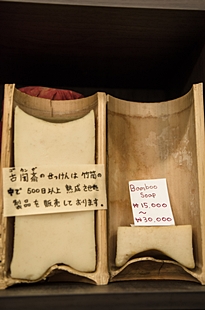 せっけんは 竹筒の
中で 500日以上 熟成させた
製品を 販売しております。
Bamboo
Soap
₩15,000
~
₩30,000